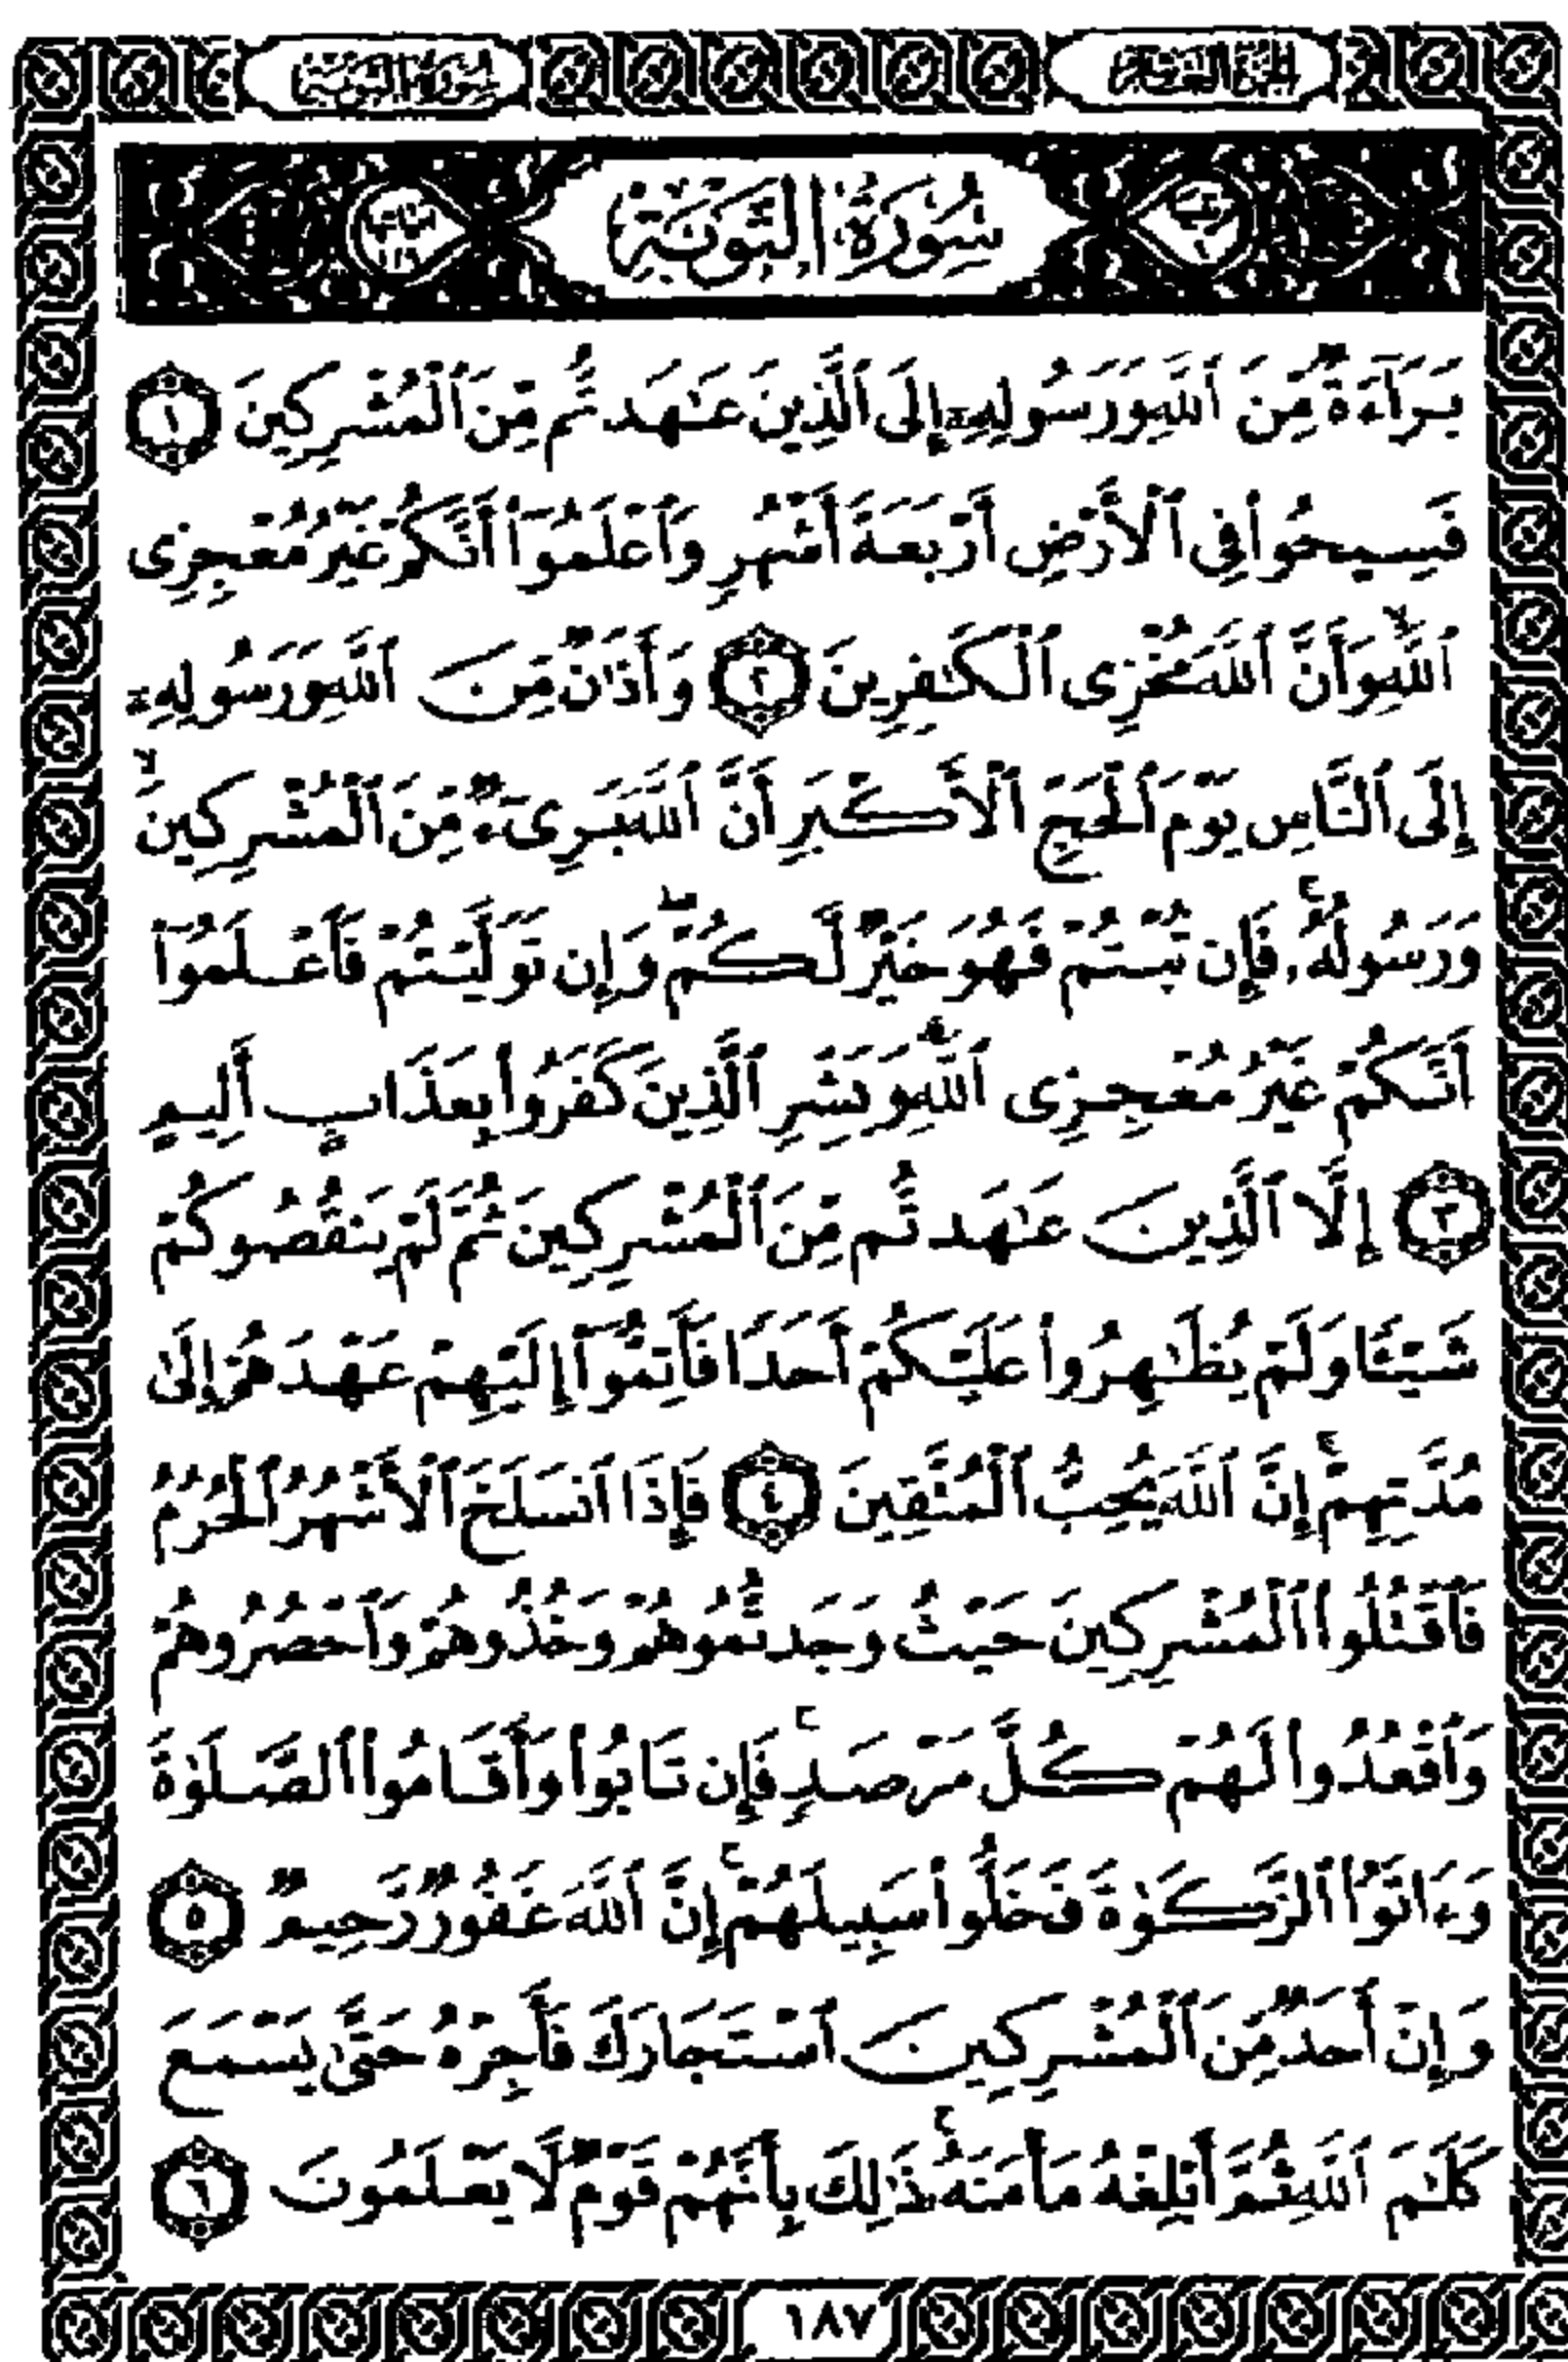 سُورَةُ التَّوْبَةِ
بَرَآءَةٌ مِّنَ ٱللَّهِ وَرَسُولِهِۦٓ إِلَى ٱلَّذِينَ عَٰهَدتُّم مِّنَ ٱلْمُشْرِكِينَ ١
فَسِيحُوا۟ فِى ٱلْأَرْضِ أَرْبَعَةَ أَشْهُرٍ وَٱعْلَمُوٓا۟ أَنَّكُمْ غَيْرُ مُعْجِزِى
ٱللَّهِ ۙ وَأَنَّ ٱللَّهَ مُخْزِى ٱلْكَٰفِرِينَ ٢ وَأَذَٰنٌ مِّنَ ٱللَّهِ وَرَسُولِهِۦٓ
إِلَى ٱلنَّاسِ يَوْمَ ٱلْحَجِّ ٱلْأَكْبَرِ أَنَّ ٱللَّهَ بَرِىٓءٌ مِّنَ ٱلْمُشْرِكِينَ ۙ
وَرَسُولُهُۥ ۚ فَإِن تُبْتُمْ فَهُوَ خَيْرٌ لَّكُمْ ۖ وَإِن تَوَلَّيْتُمْ فَٱعْلَمُوٓا۟
أَنَّكُمْ غَيْرُ مُعْجِزِى ٱللَّهِ ۗ وَبَشِّرِ ٱلَّذِينَ كَفَرُوا۟ بِعَذَابٍ أَلِيمٍ
٣ إِلَّا ٱلَّذِينَ عَٰهَدتُّم مِّنَ ٱلْمُشْرِكِينَ ثُمَّ لَمْ يَنقُصُوكُمْ
شَيْـًٔا وَلَمْ يُظَٰهِرُوا۟ عَلَيْكُمْ أَحَدًا فَأَتِمُّوٓا۟ إِلَيْهِمْ عَهْدَهُمْ إِلَىٰ
مُدَّتِهِمْ ۚ إِنَّ ٱللَّهَ يُحِبُّ ٱلْمُتَّقِينَ ٤ فَإِذَا ٱنسَلَخَ ٱلْأَشْهُرُ ٱلْحُرُمُ
فَٱقْتُلُوا۟ ٱلْمُشْرِكِينَ حَيْثُ وَجَدتُّمُوهُمْ وَخُذُوهُمْ وَٱحْصُرُوهُمْ
وَٱقْعُدُوا۟ لَهُمْ كُلَّ مَرْصَدٍ ۚ فَإِن تَابُوا۟ وَأَقَامُوا۟ ٱلصَّلَوٰةَ
وَءَاتَوُا۟ ٱلزَّكَوٰةَ فَخَلُّوا۟ سَبِيلَهُمْ ۚ إِنَّ ٱللَّهَ غَفُورٌ رَّحِيمٌ ٥
وَإِنْ أَحَدٌ مِّنَ ٱلْمُشْرِكِينَ ٱسْتَجَارَكَ فَأَجِرْهُ حَتَّىٰ يَسْمَعَ
كَلَٰمَ ٱللَّهِ ثُمَّ أَبْلِغْهُ مَأْمَنَهُۥ ۚ ذَٰلِكَ بِأَنَّهُمْ قَوْمٌ لَّا يَعْلَمُونَ ٦
١٨٧